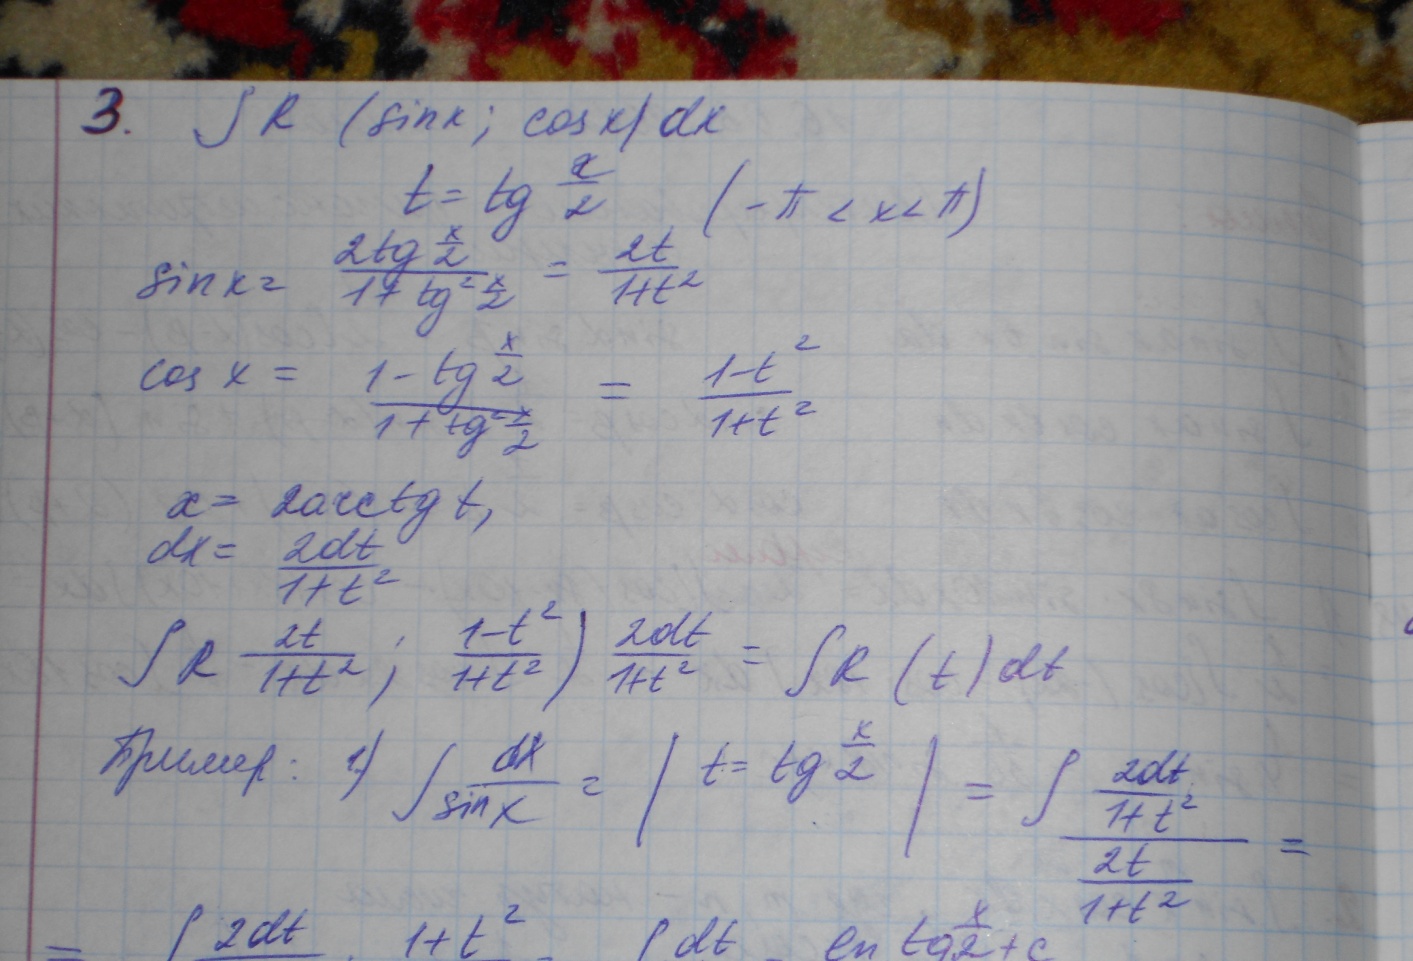 3. ∫ R (sin x; cos x) dx
t = tg x/2 (-π < x < π)
sin x = (2tg x/2)/(1 + tg² x/2) = 2t/(1+t²)
cos x = (1 - tg x/2)/(1 + tg² x/2) = (1-t²)/(1+t²)
x = 2arctg t,
dx = 2dt/(1+t²)
∫ R 2t/(1+t²) ; (1-t²)/(1+t²) ) 2dt/(1+t²) = ∫ R (t) dt
Пример: 1) ∫ dx/sin x = | t = tg x/2 | = ∫ (2dt/(1+t²))/(2t/(1+t²)) =
= ∫ 2dt · 1+t² = ∫ dt = ln tg x/2 + c